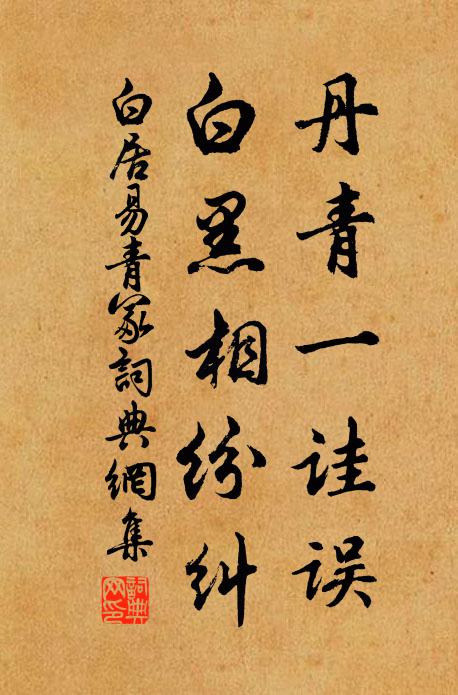 丹青一诖误
白黑相纷纠
白居易青冢詞典網集
詞典網印